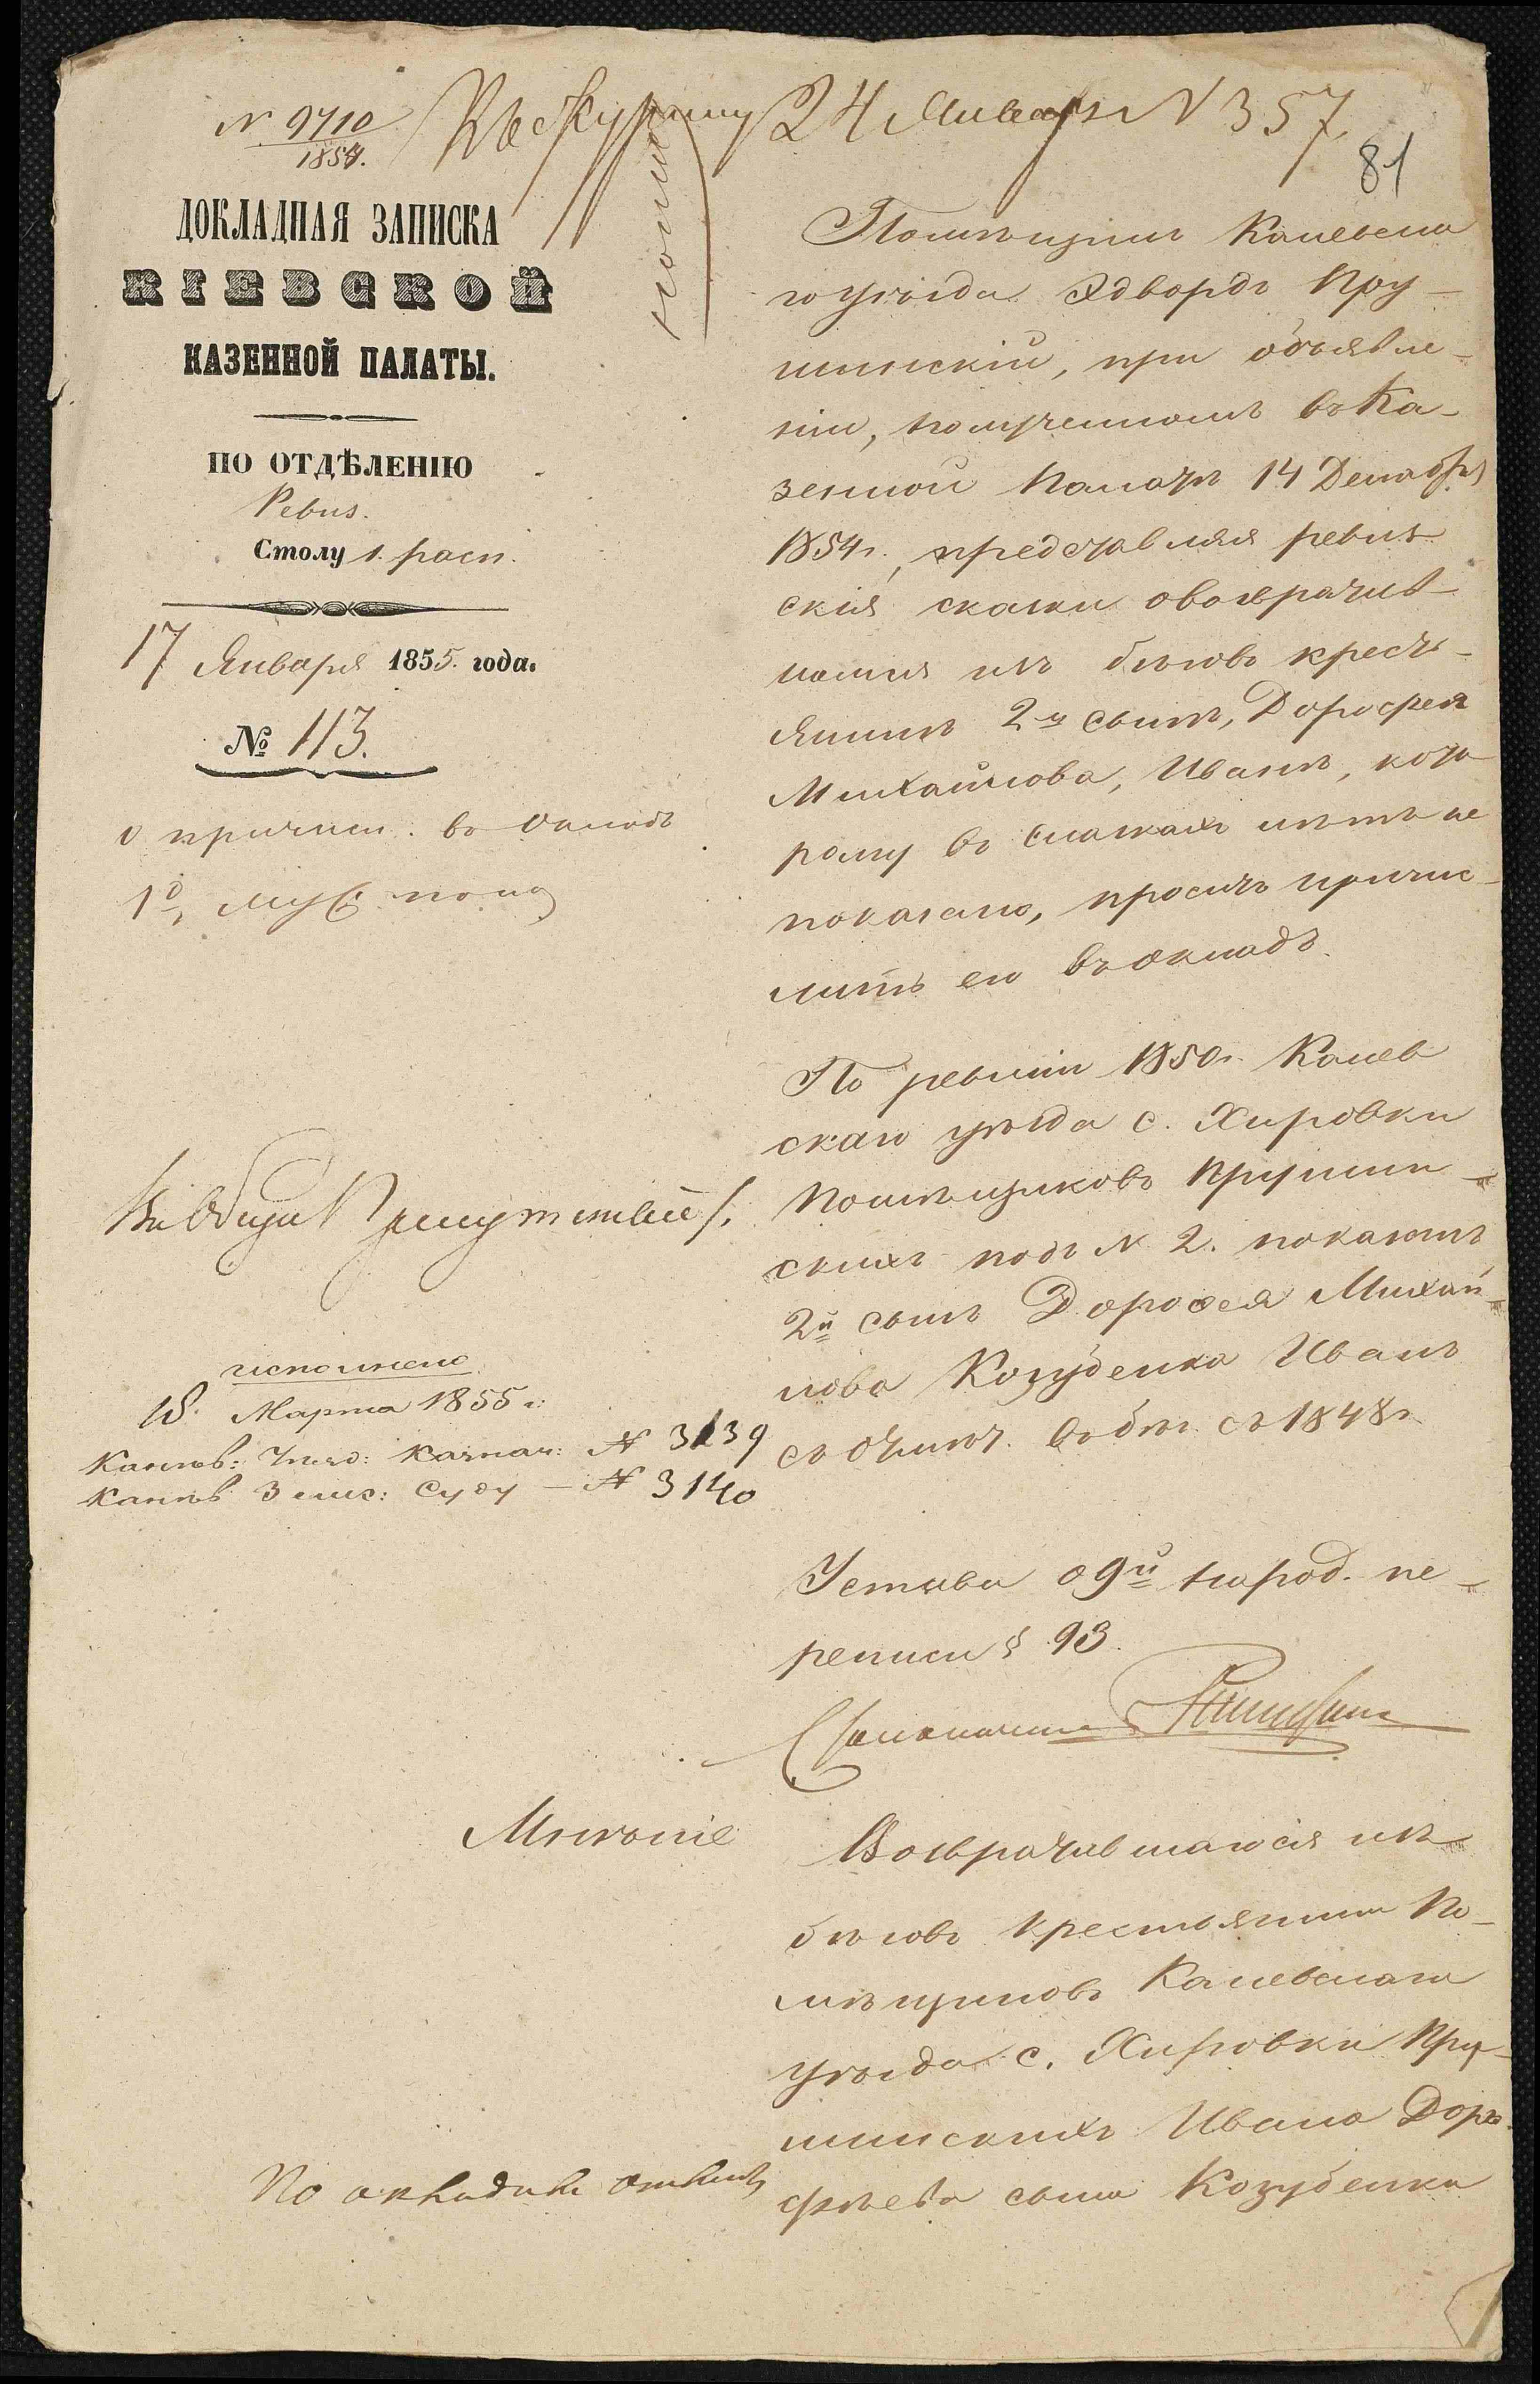 N. 9710
1854.
24 Января N 357
81
ДОКЛАДНАЯ ЗАПИСКА
КІЕВСКОЙ
КАЗЕННОЙ ПАЛАТЫ.
ПО ОТДѢЛЕНІЮ
Ревиз.
Столу 1. расп.
17 Января 1855. года.
№ 113.
о причисл. въ окладъ
1й муж. пола
Помѣщикъ Каневска
го уѣзда Эдвордъ Пру-
шинскій, при объявле-
ніи, полученномъ въ Ка-
зенной Палатѣ 14 Декабря
1854г., представляя ревиз
скія сказки о возвратив-
шемся изъ бѣговъ кресть-
янинѣ 2й сынъ, Дорофея
Михайлова, Иванъ, кото
рому въ сказкахъ лѣтъ не
показано, проситъ причис-
лить его въ окладъ.
По ревизіи 1850г. Канев
скаго уѣзда с. Хировки
Помѣщиковъ Прушин-
скихъ подъ N 2. показанъ
2й сынъ Дорофея Михай-
лова Козубенка Иванъ
съ отмѣт. въ бѣг. съ 1848г.
Въ Общее Присутствіе.
исполнено
18. Марта 1855 г:
Канев: Уѣзд: Казнач: N 3139
Канев Земс: Суду — N 3140
Устава о 9й народ. пе-
реписи § 93.
Столоначальникъ
Мнѣніе
Возвратившагося изъ
бѣговъ крестьянина По-
мѣщиковъ Каневскаго
уѣзда с. Хировки Пру-
шинскихъ Ивана Доро-
фѣева сына Козубенка